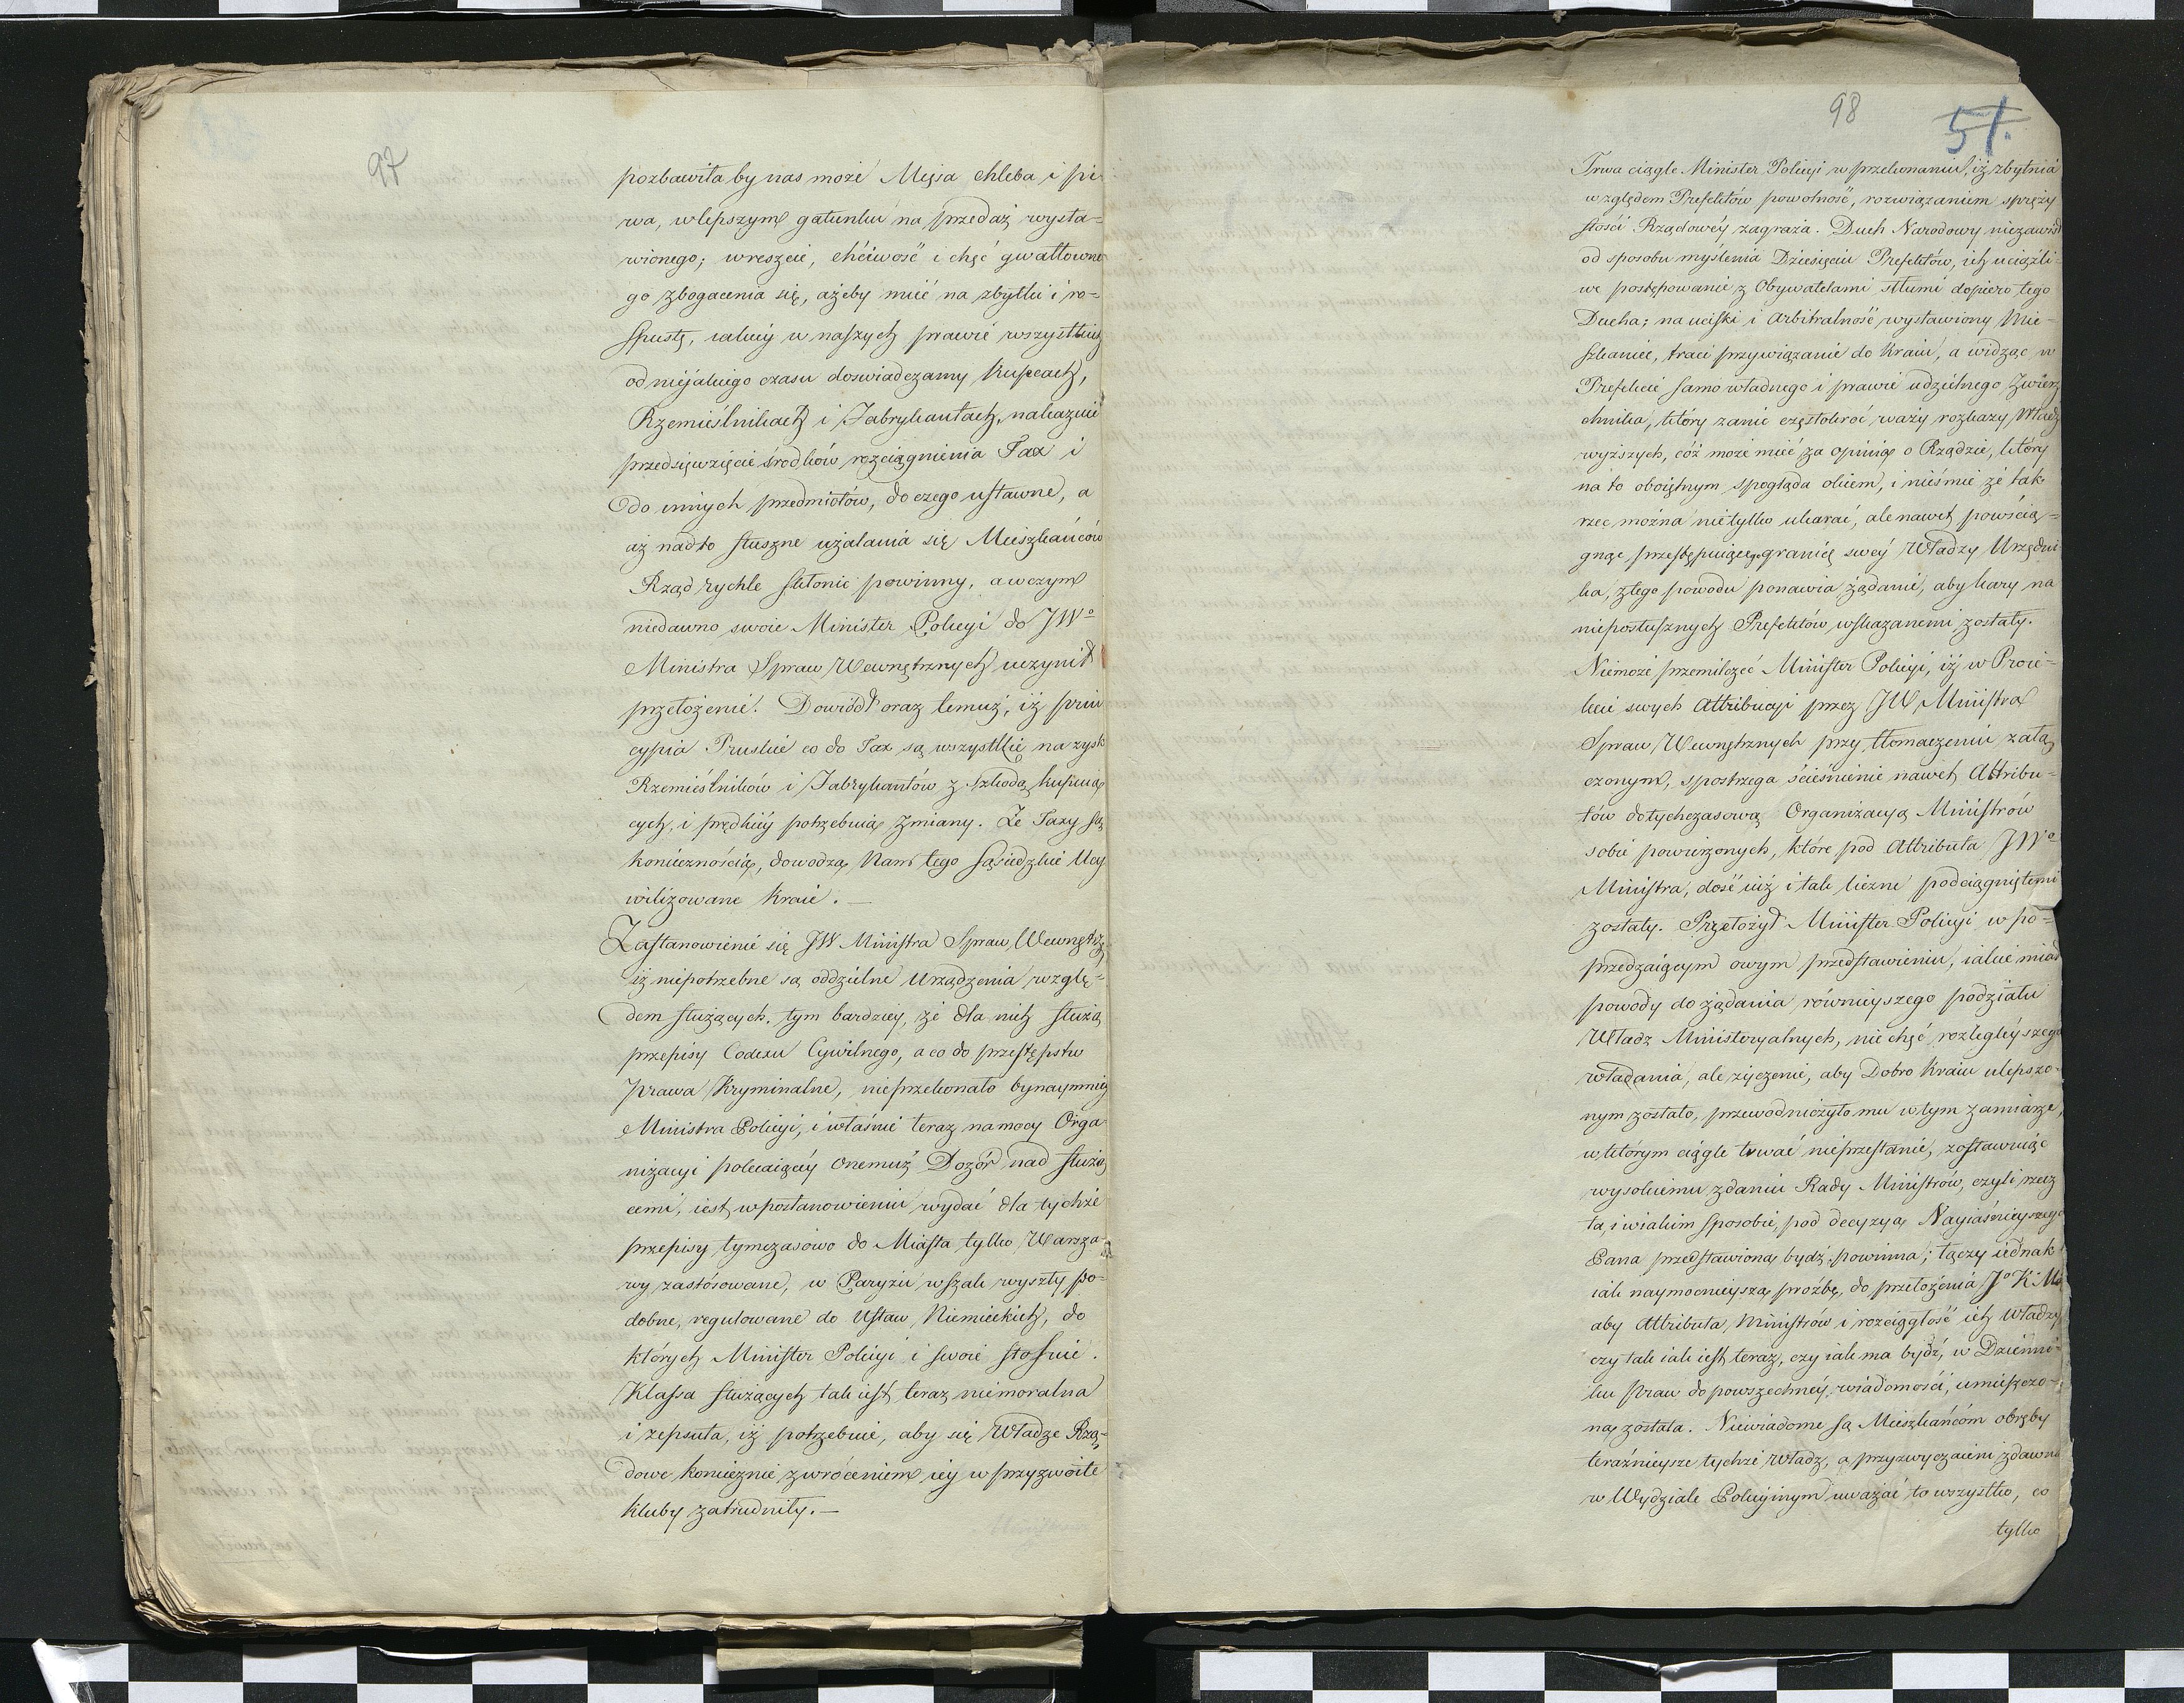 97
pozbawiła by nas może Mięsa chleba i pi
wa, w lepszym gatunku na przedaż wysta=
wionego; wreszcie, chciwość i chęć gwałtowne
go zbogacenia się, ażeby mieć na zbytki i ro=
spustę, iakiey w naszych prawie wszystkich
od niejakiego czasu doswiadczamy Kupcach,
Rzemieślnikach i Fabrykantach, nakazuie
przedsięwzięcie środków rozciągnienia Tax i
do innych przedmiotów, do czego ustawne, a
aż nadto słuszne użalania się Mieszkańców
Rząd rychle skłonić powinny, a w czym
niedawno swoie Minister Policyi do JWo
Ministra Spraw Wewnętrznych uczynił
przełożenie. Dowiódł oraz temuż, iż prin
cypia Pruskie co do Tax są wszystkie na zysk
Rzemieślników i Fabrykantów z szkodą kupuią
cych, i prędkiey potrzebuią zmiany. Że Taxy są
koniecznością, dowodzą Nam tego Sąsiedzkie Ucy
wilizowane Kraie. —
Zastanowienie się JW Ministra Spraw Wewnętrz
iż niepotrzebne są oddzielne Urządzenia wzglę=
dem służących, tym bardziey, że dla nich służą
przepisy Codexu Cywilnego, a co do przestępstw
Prawa Kryminalne, nieprzekonało bynaymniey
Ministra Policyi, i właśnie teraz na mocy Orga
nizacyi polecaiącey onemuż Dozór nad służą
cemi, iest w postanowieniu wydać dla tychże
przepisy tymczasowo do Miasta tylko Warsza=
wy zastósowane, w Paryżu wszak wyszły po=
dobne, regulowane do Ustaw Niemieckich, do
których Minister Policyi i swoie stosuie.
Klassa służących tak iest teraz niemoralna
i zepsuta, iż potrzebuie, aby się Władze Rzą=
dowe koniecznie zwróceniem iey w przyzwoite
kluby zatrudniły. —
98
51.
Trwa ciągle Minister Policyi w przekonaniu, iż zbytnia
względem Prefektów powolność, rozwiązaniem spręży
stości Rządowéy zagraża. Duch Narodowy niezawisł
od sposobu myślenia Dziesięciu Prefektów, ich uciążli=
we postępowanie z Obywatelami stłumi dopiero tego
Ducha; na uciski i Arbitralność wystawiony Mie=
szkaniec, traci przywiązanie do Kraiu, a widząc w
Prefekcie samowładnego i prawie udzielnego Zwierz
chnika, który zanic częstokroć waży rozkazy Władz
wyższych, cóż może mieć za opinią o Rządzie, który
na to oboiętnym spogląda okiem, i nieśmie że tak
rzec można nietylko ukarać, ale nawet powścią=
gnąć przestępuiącego granicę swey Władzy Urzędni
ka, z tego powodu ponawia żądanie, aby kary na
nieposłusznych Prefektów wskazanemi zostały.
Niemoże przemilczeć Minister Policyi, iż w Proie=
kcie swych Attribucyi przez JW Ministra
Spraw Wewnętrznych przy tłomaczeniu załą
czonym, spostrzega ścieśnienie nawet Attribu=
tów dotychczasową Organizacyą Ministrów
sobie powierzonych, które pod Attributa JWo
Ministra, dość iuż i tak liczne podciągniętemi
zostały. Przełożył Minister Policyi w po=
przedzaiącym owym przedstawieniu, iakie miał
powody do żądania równieyszego podziału
Władz Ministeryalnych, nie chęć rozlegleyszego
władania, ale życzenie, aby Dobro Kraiu ulepszo=
nym zostało, przewodniczyło mu w tym zamiarze,
w którym ciągle trwać nieprzestanie, zostawuiąc
wysokiemu zdaniu Rady Ministrów, czyli rzecz
ta, i wiakim sposobie, pod decyzyą Nayiaśnieyszego
Pana przedstawioną bydź powinna; łączy iednak
iak naymocnieyszą prozbę, do przełożenia Jo K. M
aby Attributa Ministrów i rozciągłość ich władzy
czy tak iak iest teraz, czy iak ma bydź, w Dzienni=
ku Praw do powszechney wiadomości, umieszczo=
ną została. Niewiadome są Mieszkańcom obręby
teraźnieysze tychże Władz, a przyzwyczaieni zdawna
w Wydziale Policyinym uważać to wszystko, co
tylko